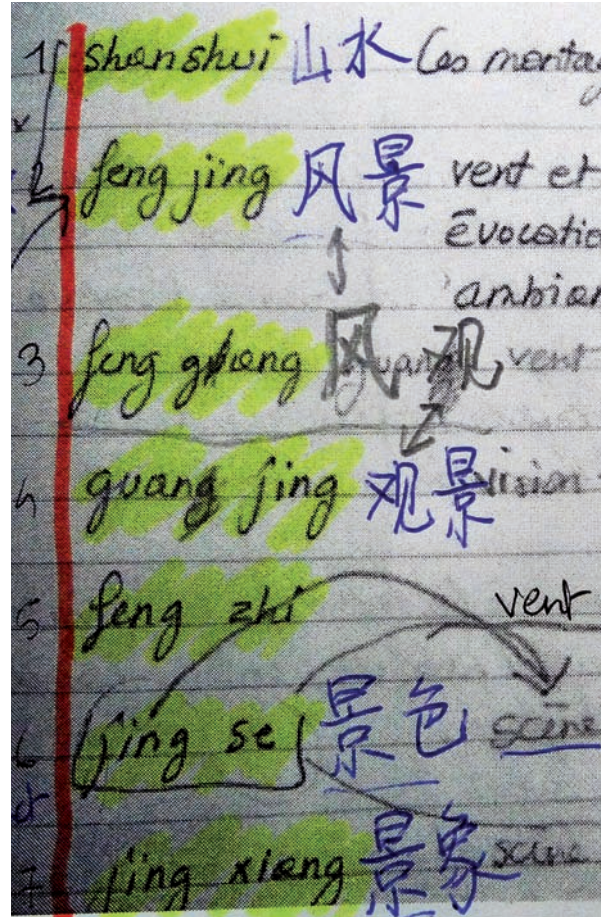 1 shanshui 山水 Les montag
2 feng jing 风景 vent et
évocatio
ambian
3 feng guang 风 观 vent
4 guang jing 观景 vision
5 feng zhi vent
6 jing se 景色 scène
7 jing xiang 景象 scène